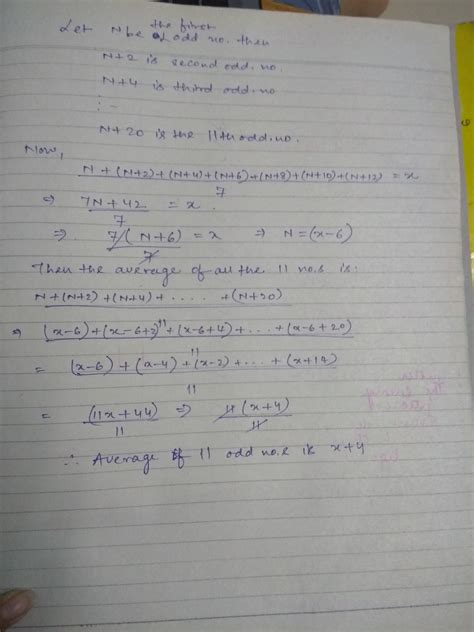 the first
Let N be of odd no. then
N+2 is second odd. no.
N+4 is third odd. no
⋮ -
N+20 is the 11th odd. no.
Now,
N + (N+2) + (N+4) + (N+6) + (N+8) + (N+10) + (N+12) = x
7
⇒ 7N+42 = x.
7
⇒ 7(N+6) = x ⇒ N=(x-6)
7
Then the average of all the 11 no.s is:
N+(N+2) + (N+4) + ..... + (N+20)
11
⇒ (x-6)+(x-6+2)+(x-6+4)+...+(x-6+20)
11
= (x-6) + (x-4) + (x-2) + ... + (x+14)
11
= (11x+44) ⇒ 11(x+4)
11 11
∴ Average of 11 odd no.s is x+4